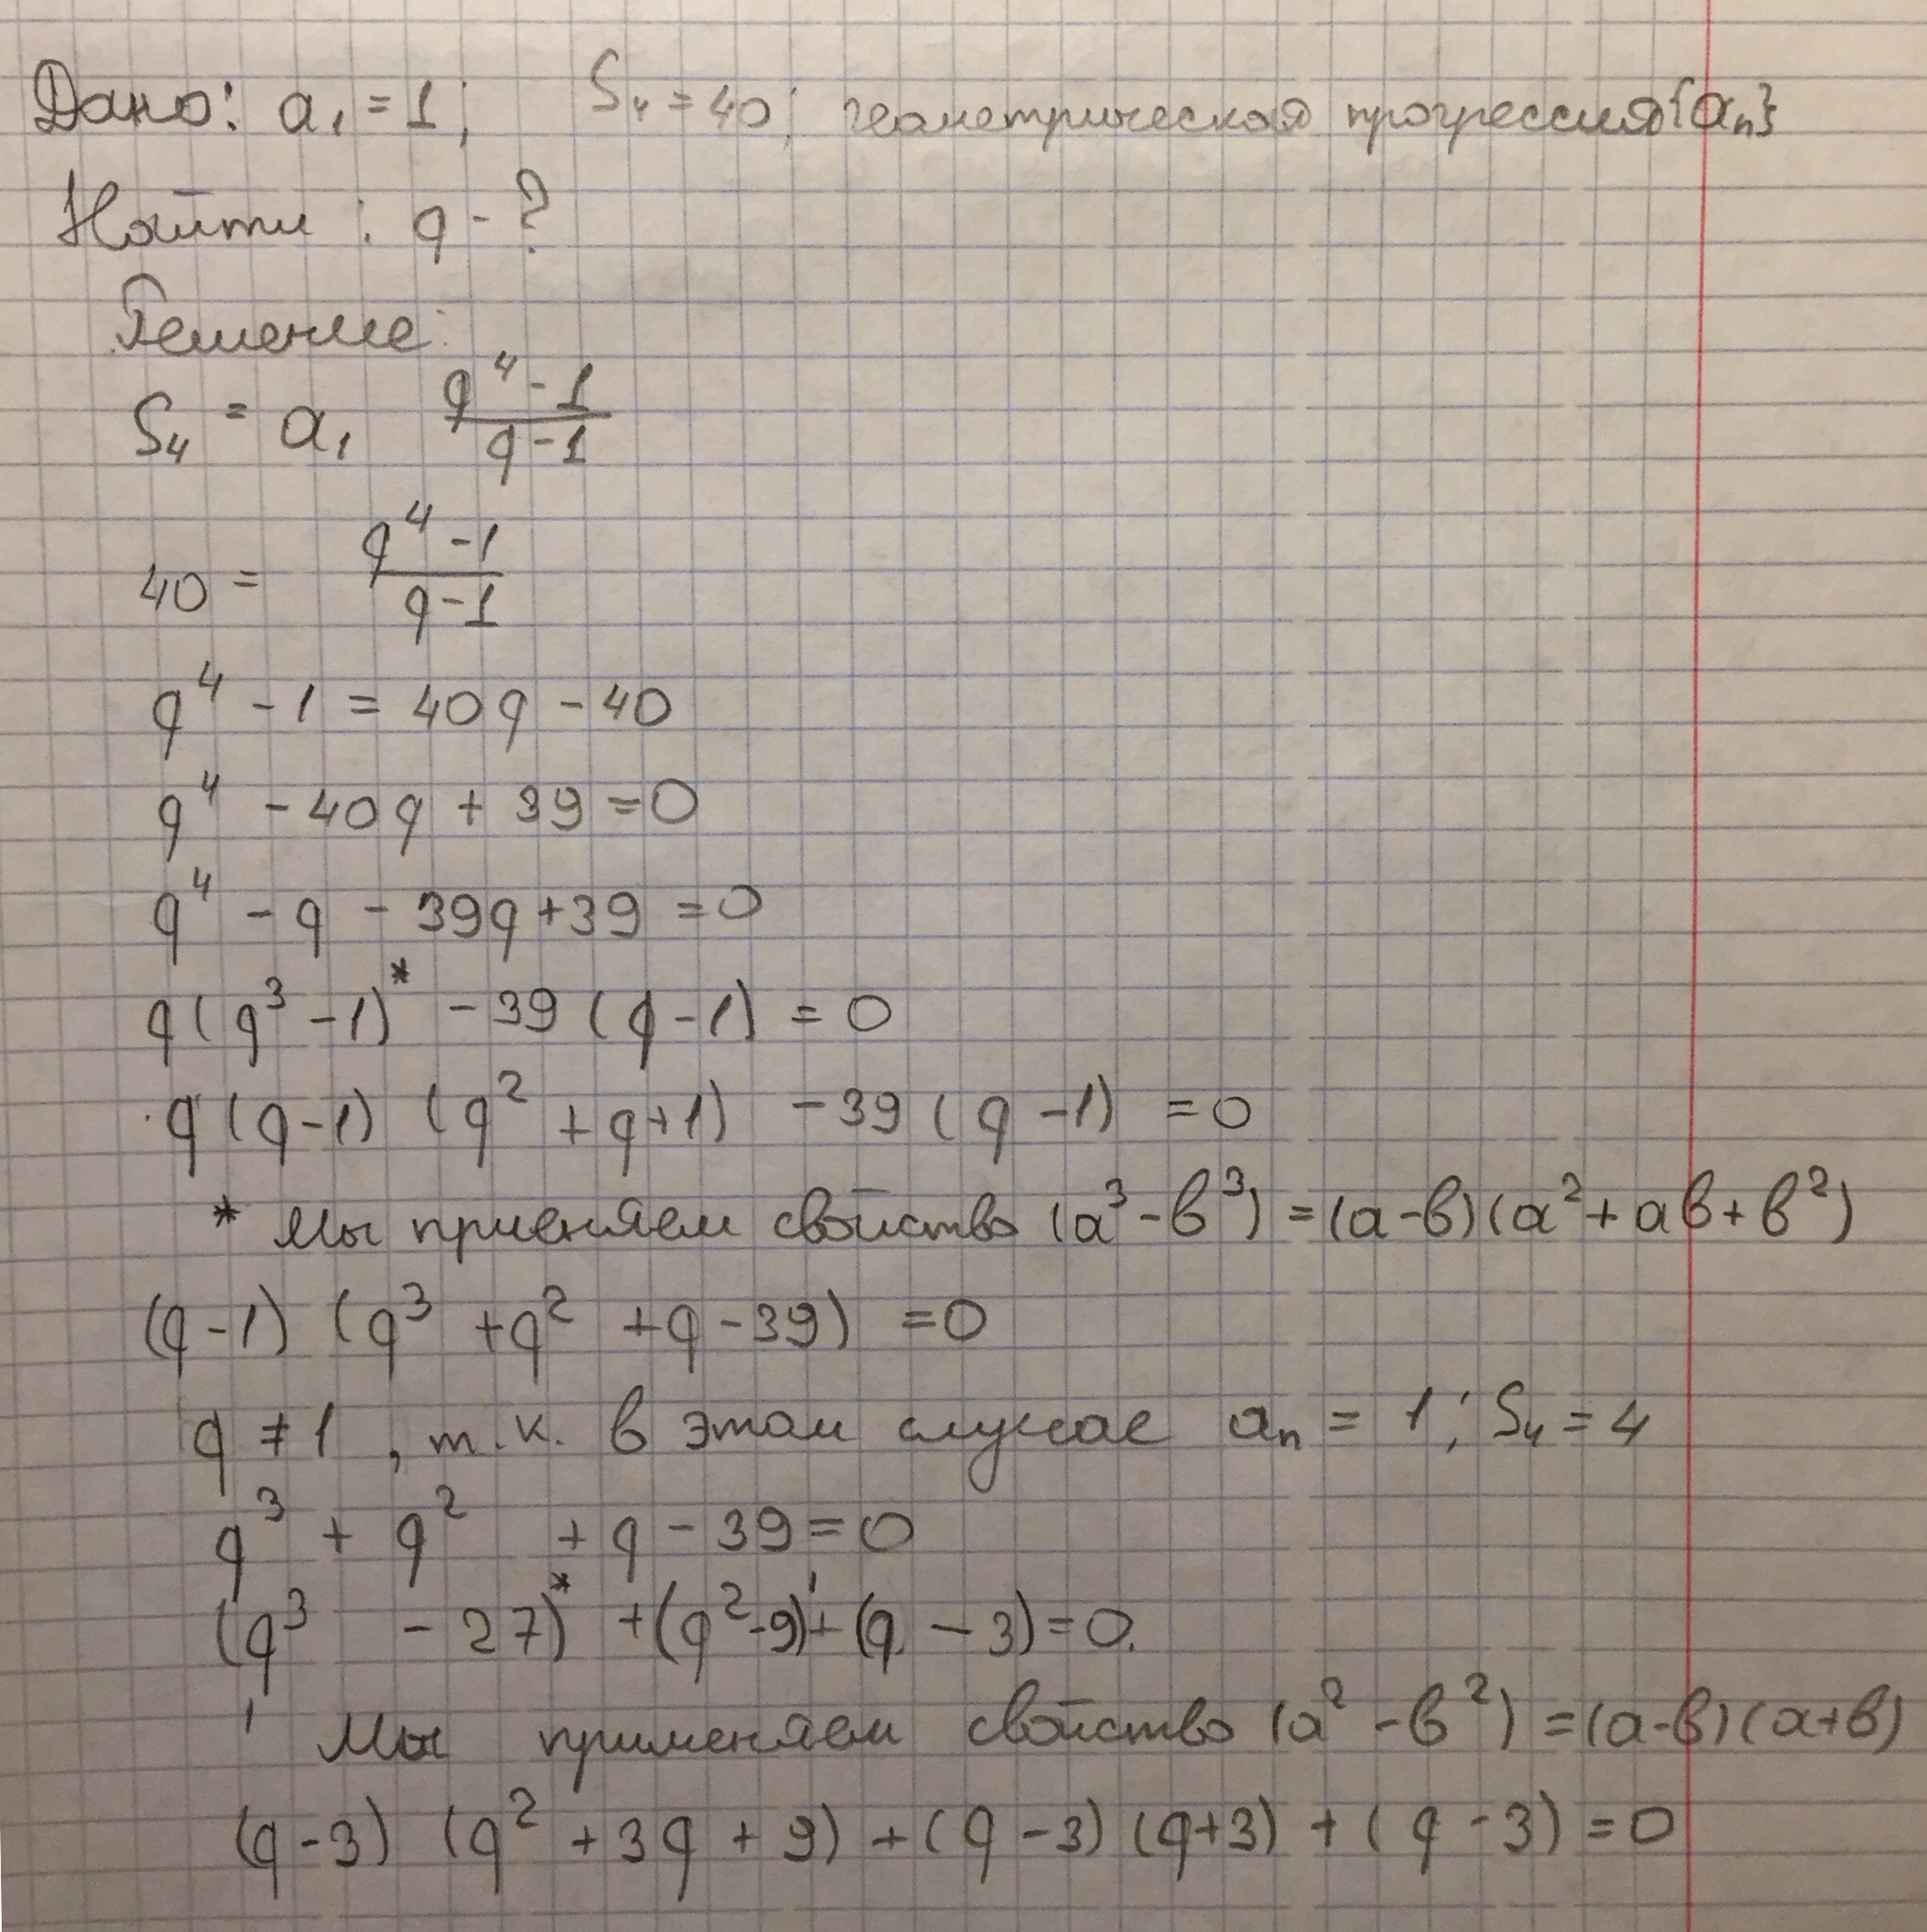 Дано: a₁ = 1; S₄ = 40; геометрическая прогрессия {aₙ}
Найти: q - ?
Решение:
S₄ = a₁ (q⁴ - 1)/(q - 1)
40 = (q⁴ - 1)/(q - 1)
q⁴ - 1 = 40q - 40
q⁴ - 40q + 39 = 0
q⁴ - q - 39q + 39 = 0
q(q³ - 1)* - 39(q - 1) = 0
q(q - 1)(q² + q + 1) - 39(q - 1) = 0
* Мы применяем свойство (a³ - в³) = (a - в)(a² + aв + в²)
(q - 1)(q³ + q² + q - 39) = 0
q ≠ 1, т.к. в этом случае aₙ = 1; S₄ = 4
q³ + q² + q - 39 = 0
(q³ - 27)* + (q² - 9)' + (q - 3) = 0.
' Мы применяем свойство (a² - в²) = (a - в)(a + в)
(q - 3)(q² + 3q + 9) + (q - 3)(q + 3) + (q - 3) = 0